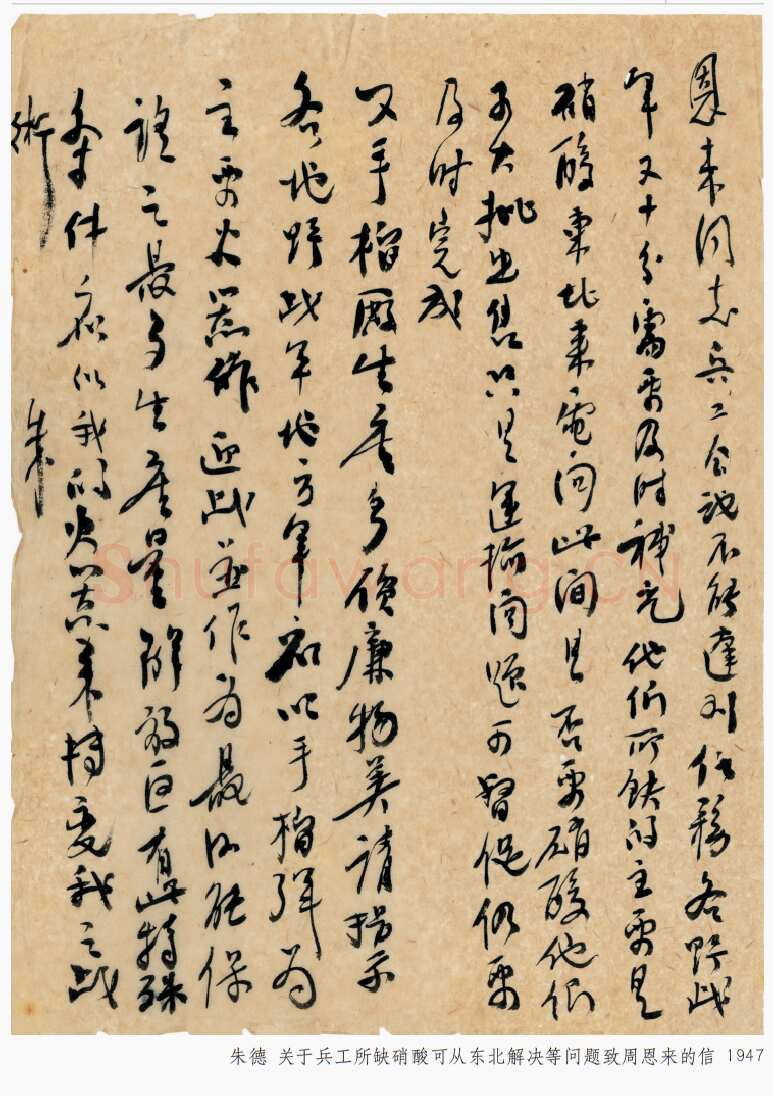 恩来同志兵工会议不能达到任务各野战
军又十分需要及时补充他们所缺的主要是
硝酸东北来电问此间是否要硝酸他们
可大批出售只是运输问题可督促仍要
及时完成
又手榴厂生产多价廉物美请指示
各地野战军地方军应以手榴弹为
主要火器作迎战并作为最后能保
证之最多生产量解放区有此特殊
条件应以我的火器来转变我之战
術
朱
Shufawang.CN
朱德 关于兵工所缺硝酸可从东北解决等问题致周恩来的信 1947